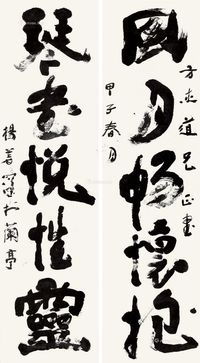 方走道兄正書
風月暢懷抱
甲子春月
琴書悅性靈
楊善深於蘭亭